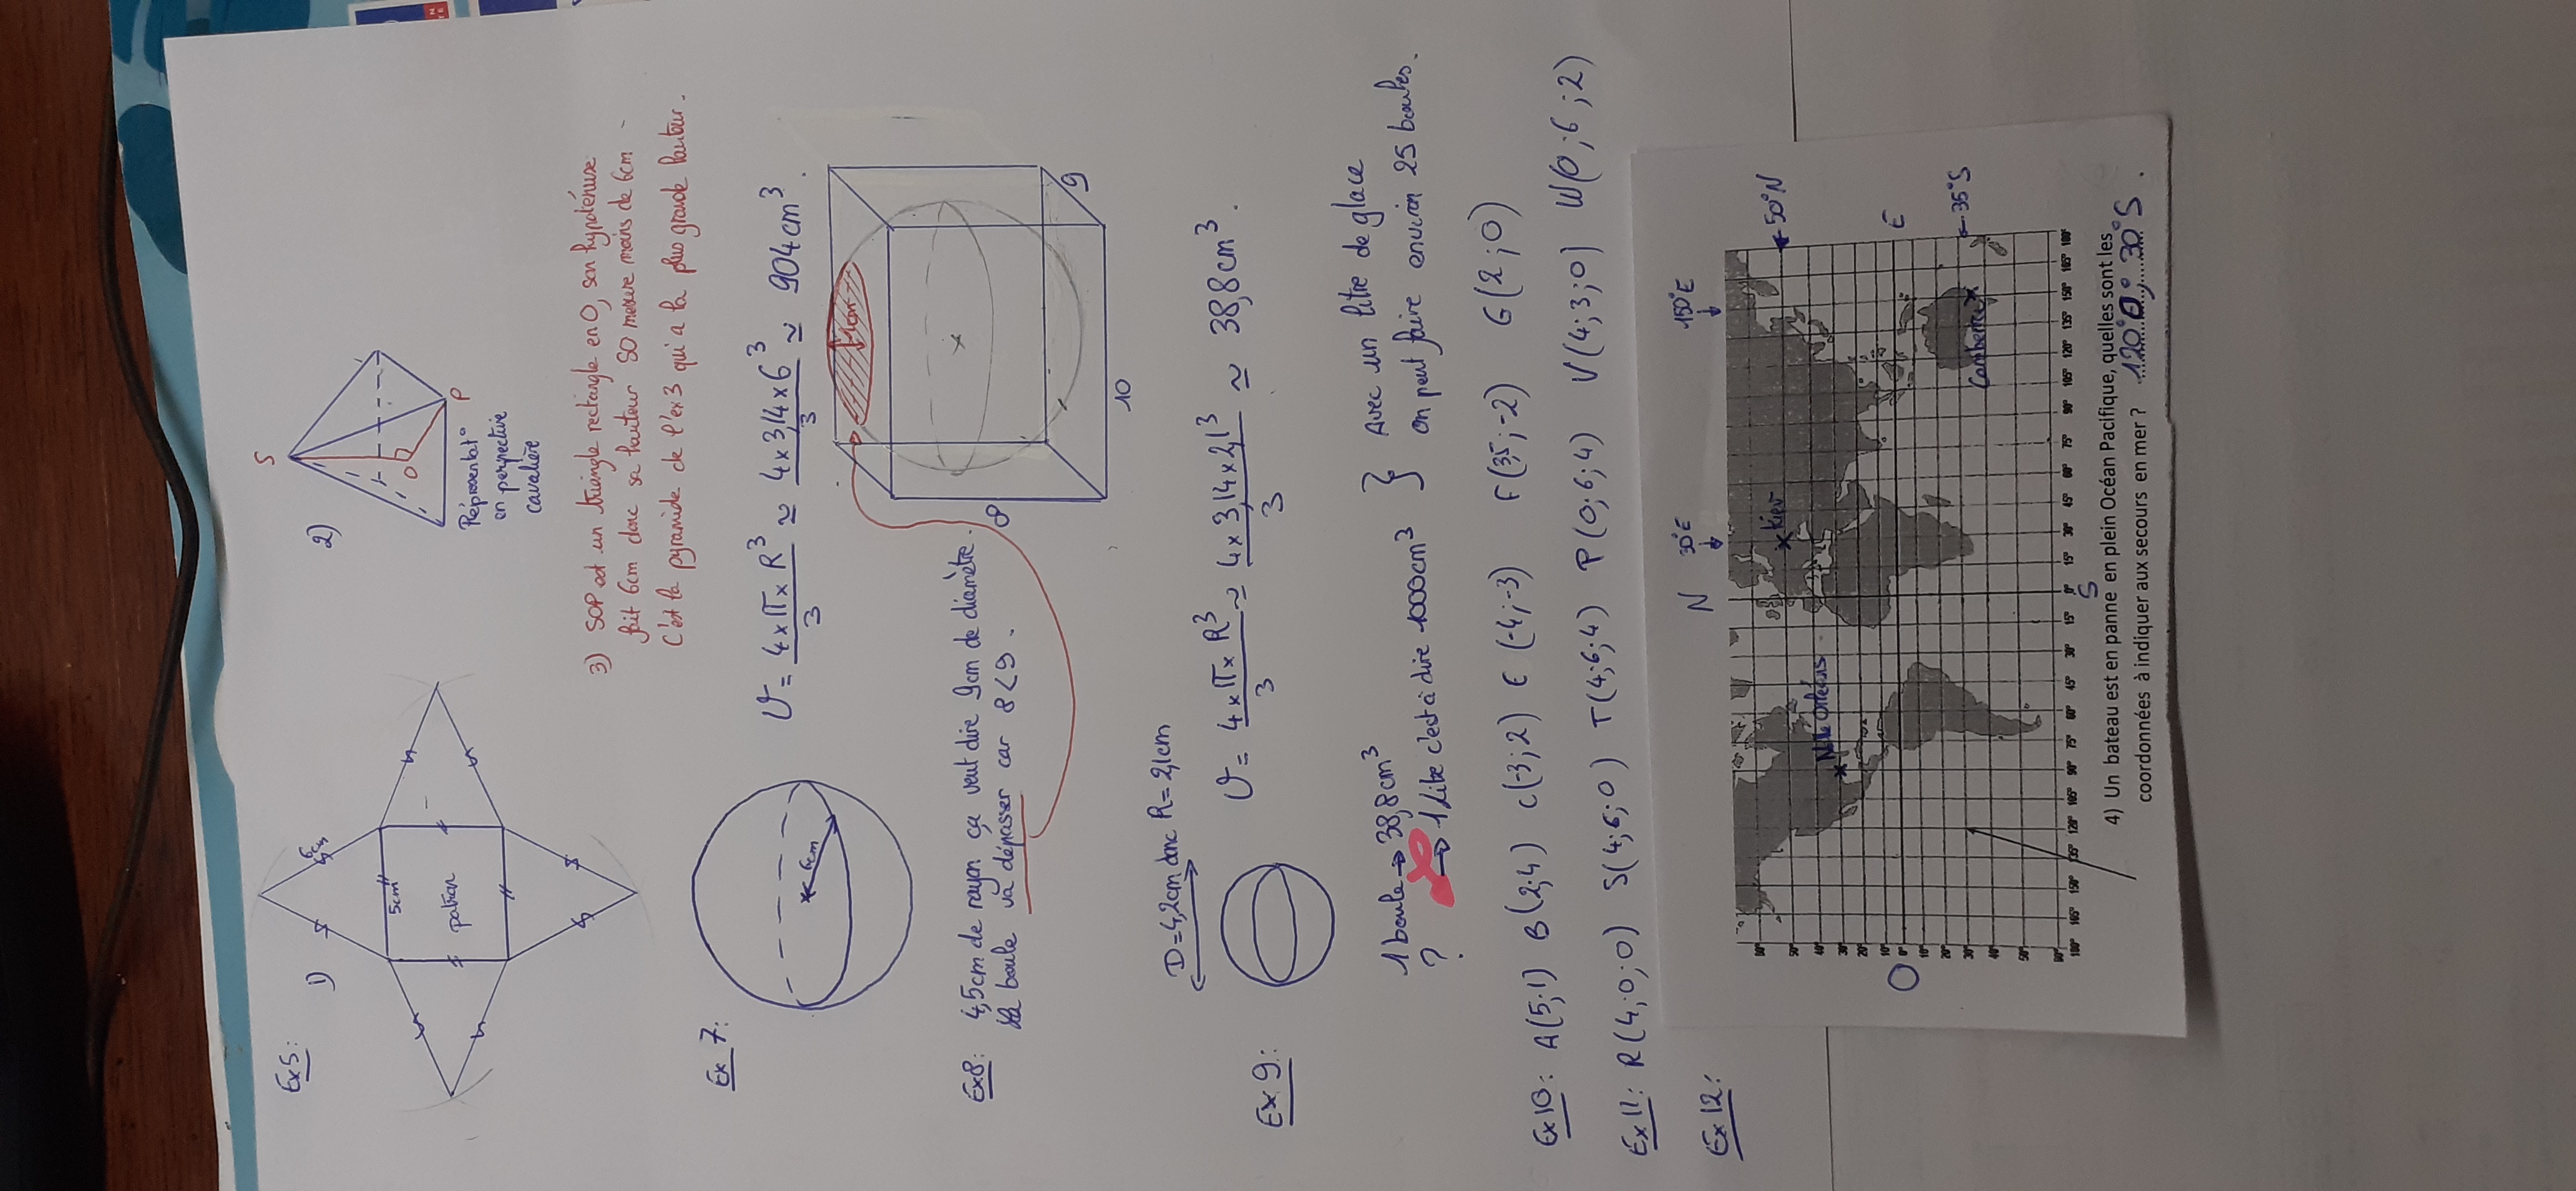 Ex 5:
1)
6cm
5cm
patron
2)
S
O
P
Représentat°
en perspective
cavalière
3) SOP est un triangle rectangle en O, son hypoténuse
fait 6cm donc sa hauteur SO mesure moins de 6cm
C'est la pyramide de l'ex 3 qui a la plus grande hauteur.
Ex 7:
6cm
V = 4 × π × R³ / 3 ≃ 4 × 3,14 × 6³ / 3 ≃ 904 cm³.
Ex8: 4,5cm de rayon ça veut dire 9cm de diamètre.
La boule va dépasser car 8 < 9.
1cm
8
10
9
Ex 9:
D = 4,2cm donc R = 2,1cm
V = 4 × π × R³ / 3 ≃ 4 × 3,14 × 2,1³ / 3 ≃ 38,8 cm³.
1 boule → 38,8cm³
? → 1 Litre c'est à dire 1000cm³
Avec un litre de glace
on peut faire environ 25 boules.
Ex 10: A(5;1) B(2;4) C(-3;2) E(-4;-3) F(3,5;-2) G(2;0)
Ex 11: R(4;0;0) S(4;6;0) T(4;6;4) P(0;6;4) V(4;3;0) W(0;6;2)
Ex 12:
N
30°E
150°E
← 50°N
Kiev
Nlle Orléans
O
E
Canberra
← 35°S
S
60°
50°
40°
30°
20°
10°
0°
10°
20°
30°
40°
50°
60°
180° 165° 150° 135° 120° 105° 90° 75° 60° 45° 30° 15° 0° 15° 30° 45° 60° 75° 90° 105° 120° 135° 150° 165° 180°
4) Un bateau est en panne en plein Océan Pacifique, quelles sont les
coordonnées à indiquer aux secours en mer ? 120°O; 30°S.